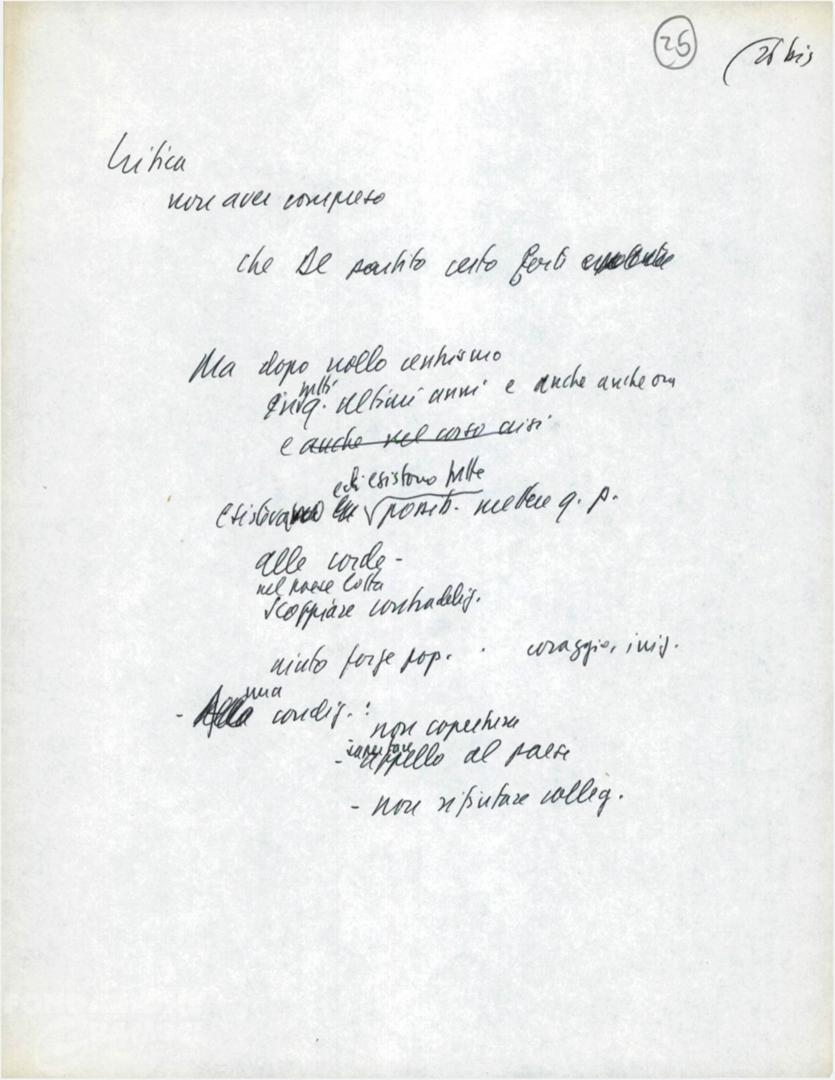 25 26 bis
Critica
non aver compreso
che DC partito certo forti
Ma dopo crollo centrismo
tutti
ultimi anni e anche anche ora
e anche nel corso crisi
ed esistono tutte
esistevano possib. mettere q. p.
alle corde -
nel paese lotta
scoppiare contraddiz.
aiuto forze pop. . coraggio, iniz.
una
- Alla condiz. :
non copertura
- appello al paese
- non rifiutare colleg.